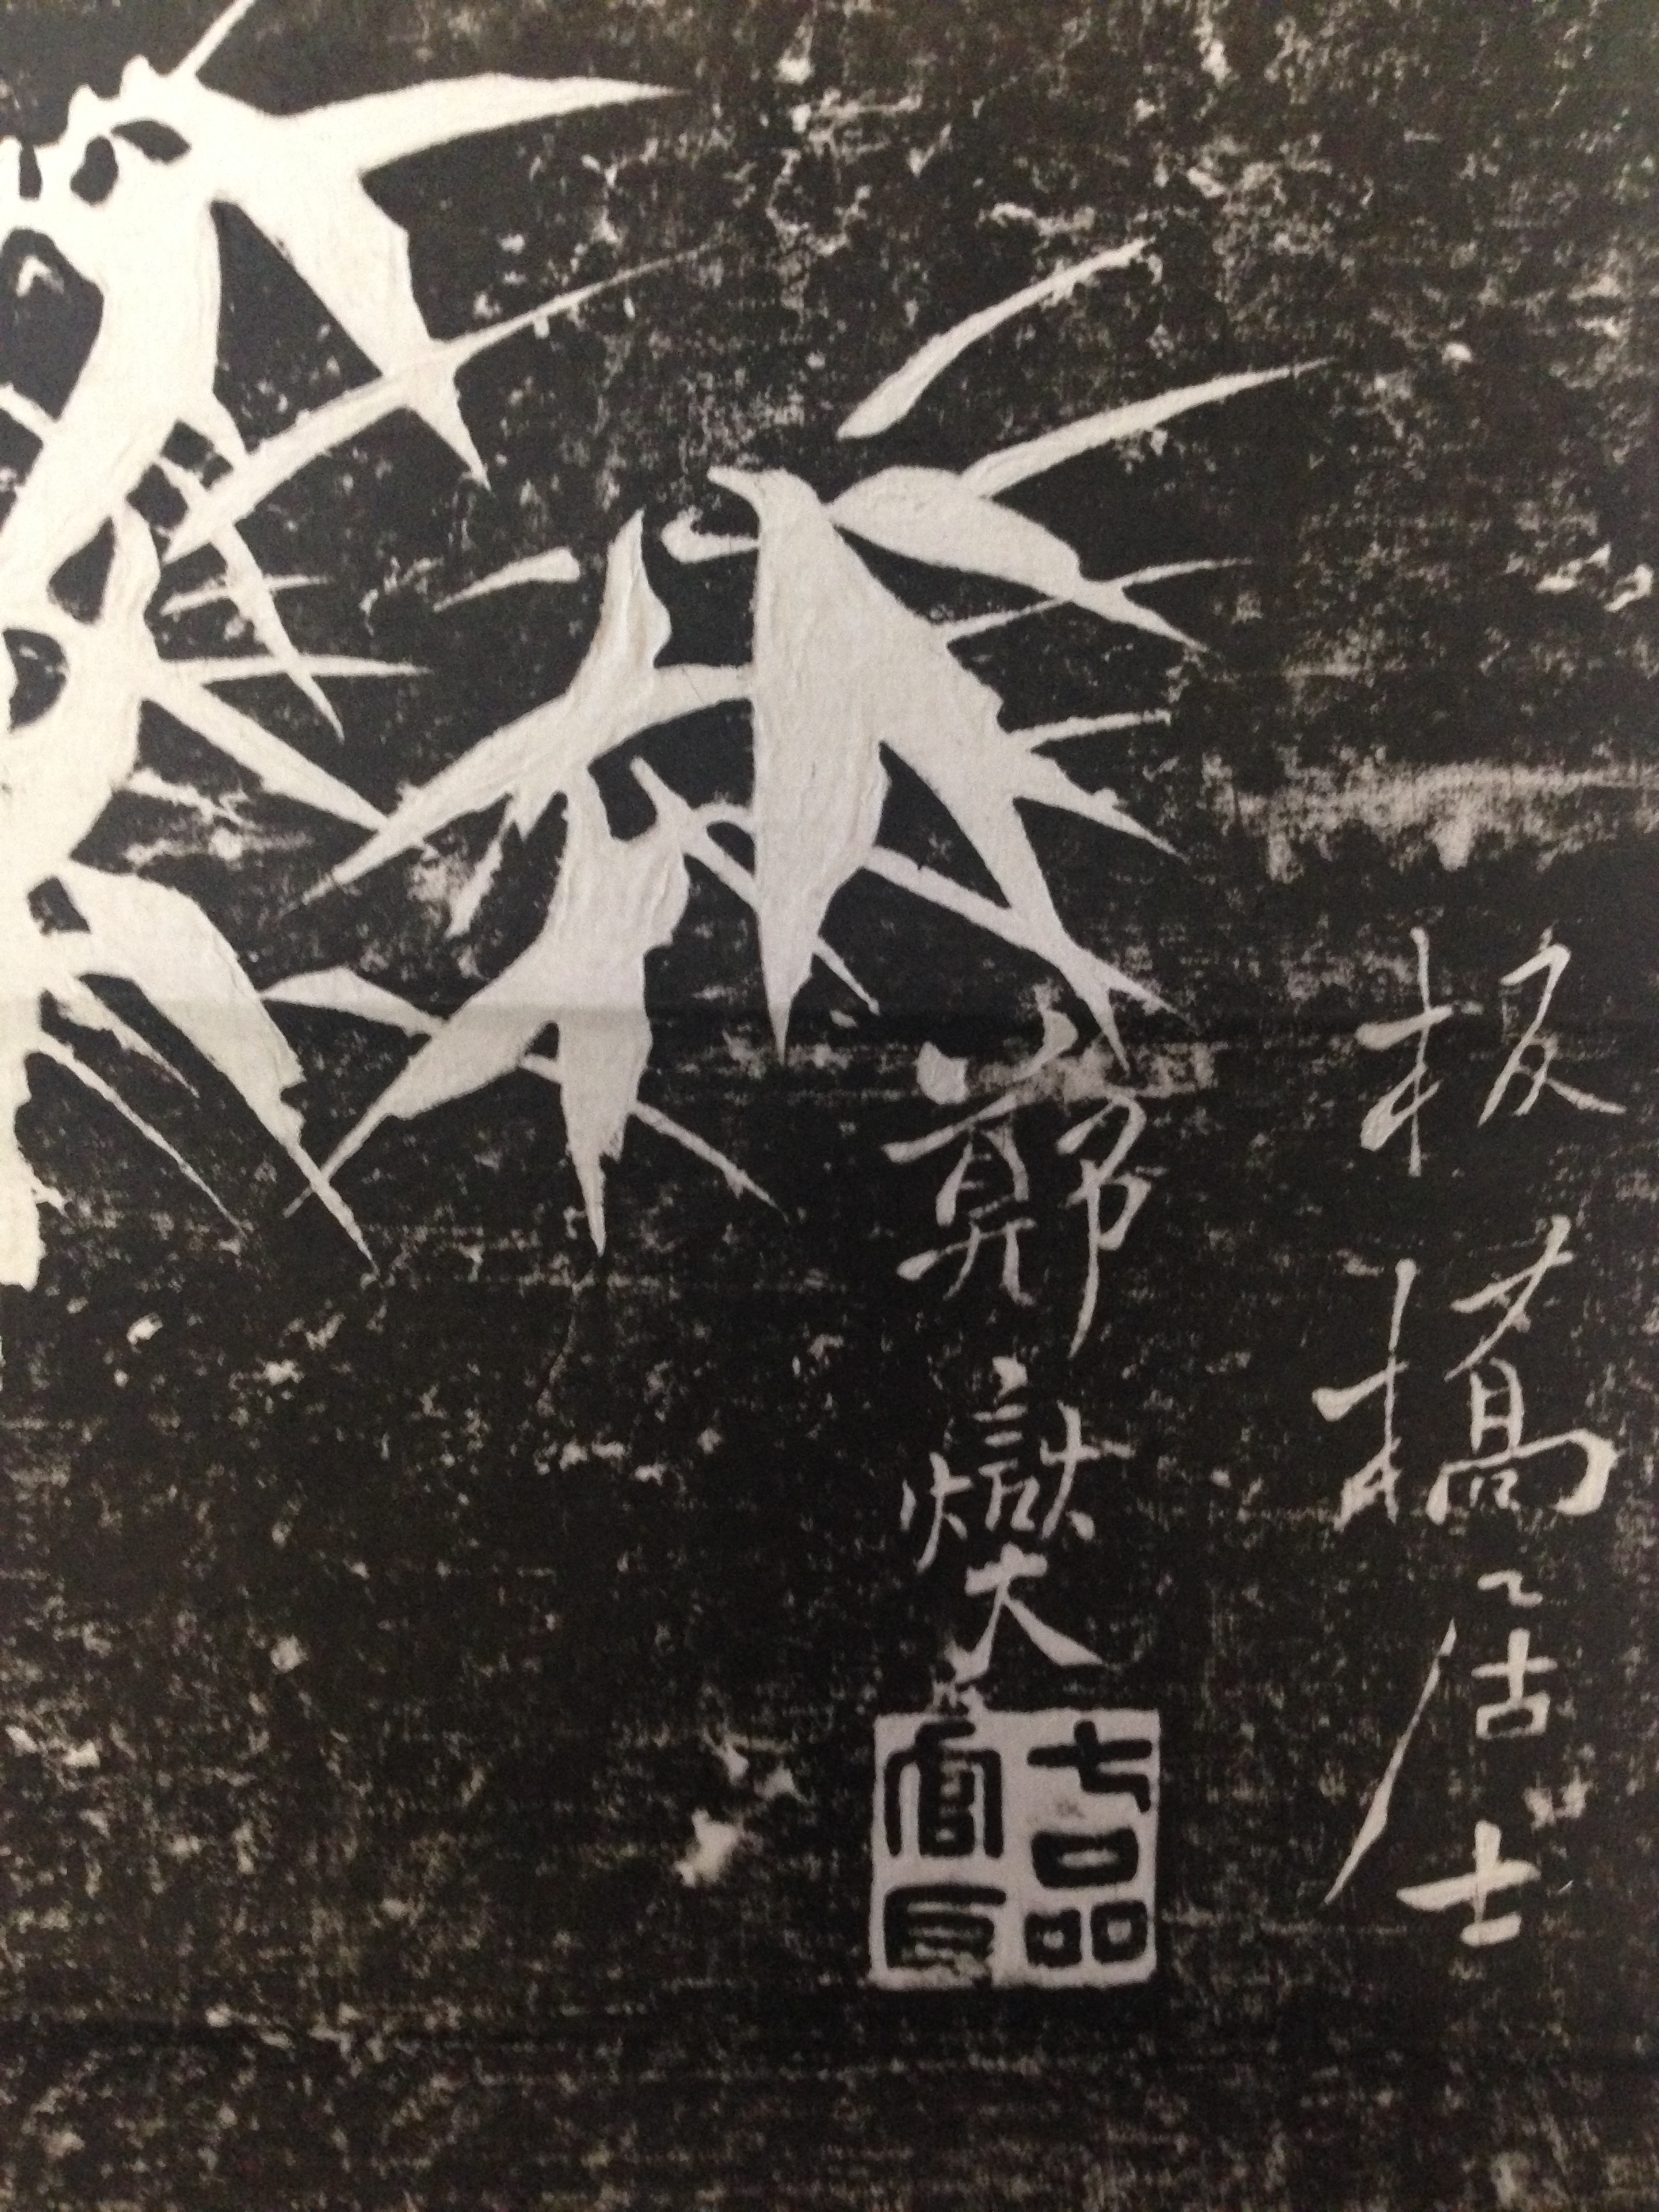 板橋居士
鄭燮
七品
官耳